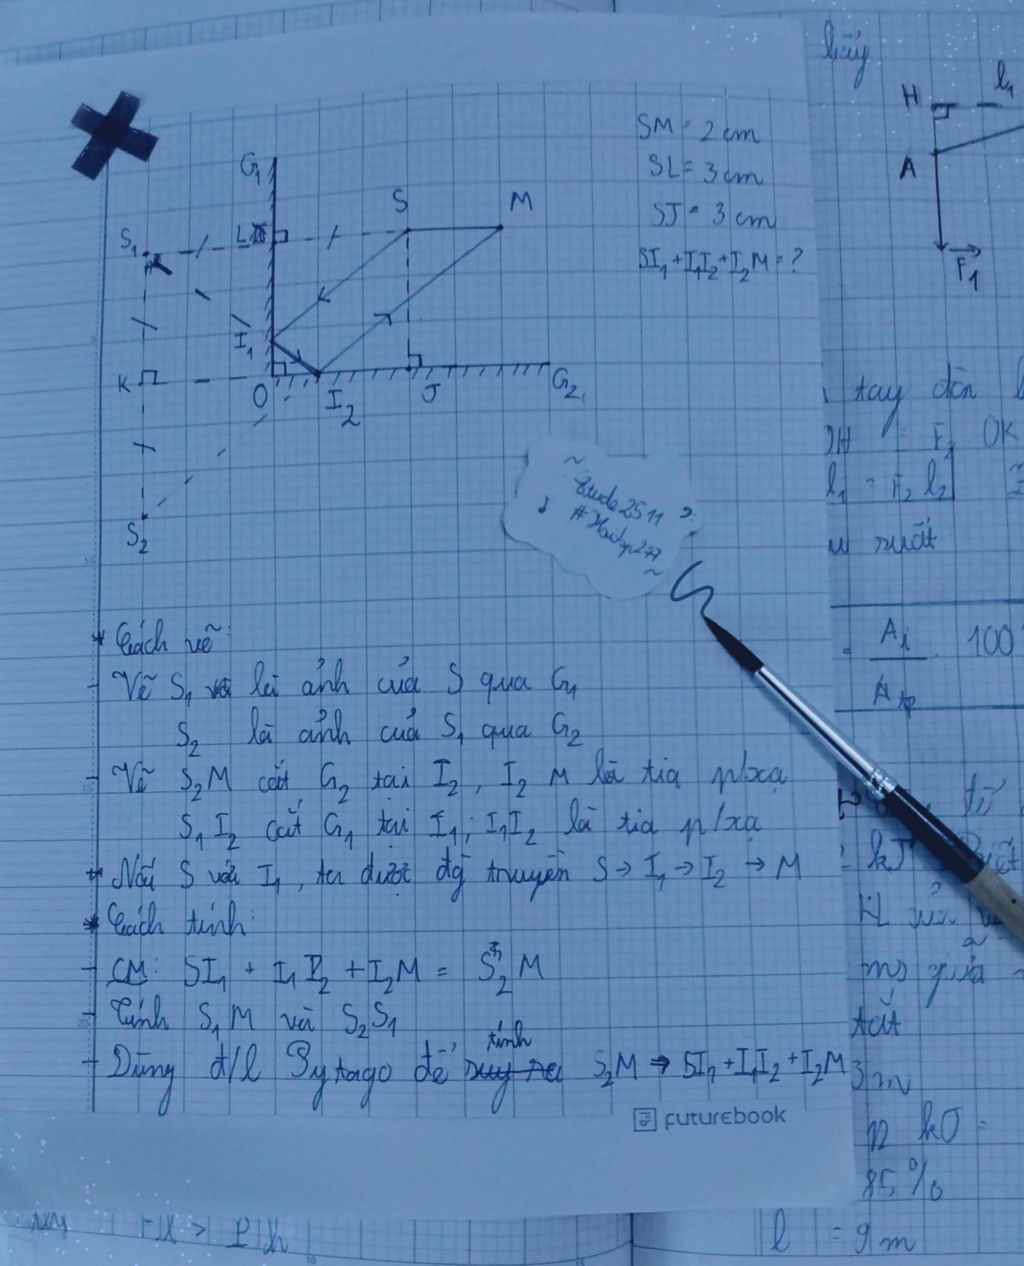 G₁
S₁
L
S
M
SM = 2 cm
SL = 3 cm
SJ = 3 cm
SI₁ + I₁I₂ + I₂M = ?
I₁
K
O
I₂
J
G₂
S₂
~
Etude2511
~
* Cách vẽ:
- Vẽ S₁ là ảnh của S qua G₁
S₂ là ảnh của S₁ qua G₂
- Vẽ S₂M cắt G₂ tại I₂, I₂M là tia p/xạ
S₁I₂ cắt G₁ tại I₁; I₁I₂ là tia p/xạ
+ Nối S với I₁, ta được đg truyền S → I₁ → I₂ → M
* Cách tính:
- CM: SI₁ + I₁I₂ + I₂M = S₂M
- Tính S₁M và S₂S₁
+ Dùng đ/l Pytago để tính S₂M → SI₁ + I₁I₂ + I₂M
futurebook
lấy
H
l₁
A
F₁
tay đòn
OK
l₂
Aᵢ
100
Atp
kJ
giữa
tắt
85%
l = 9 m